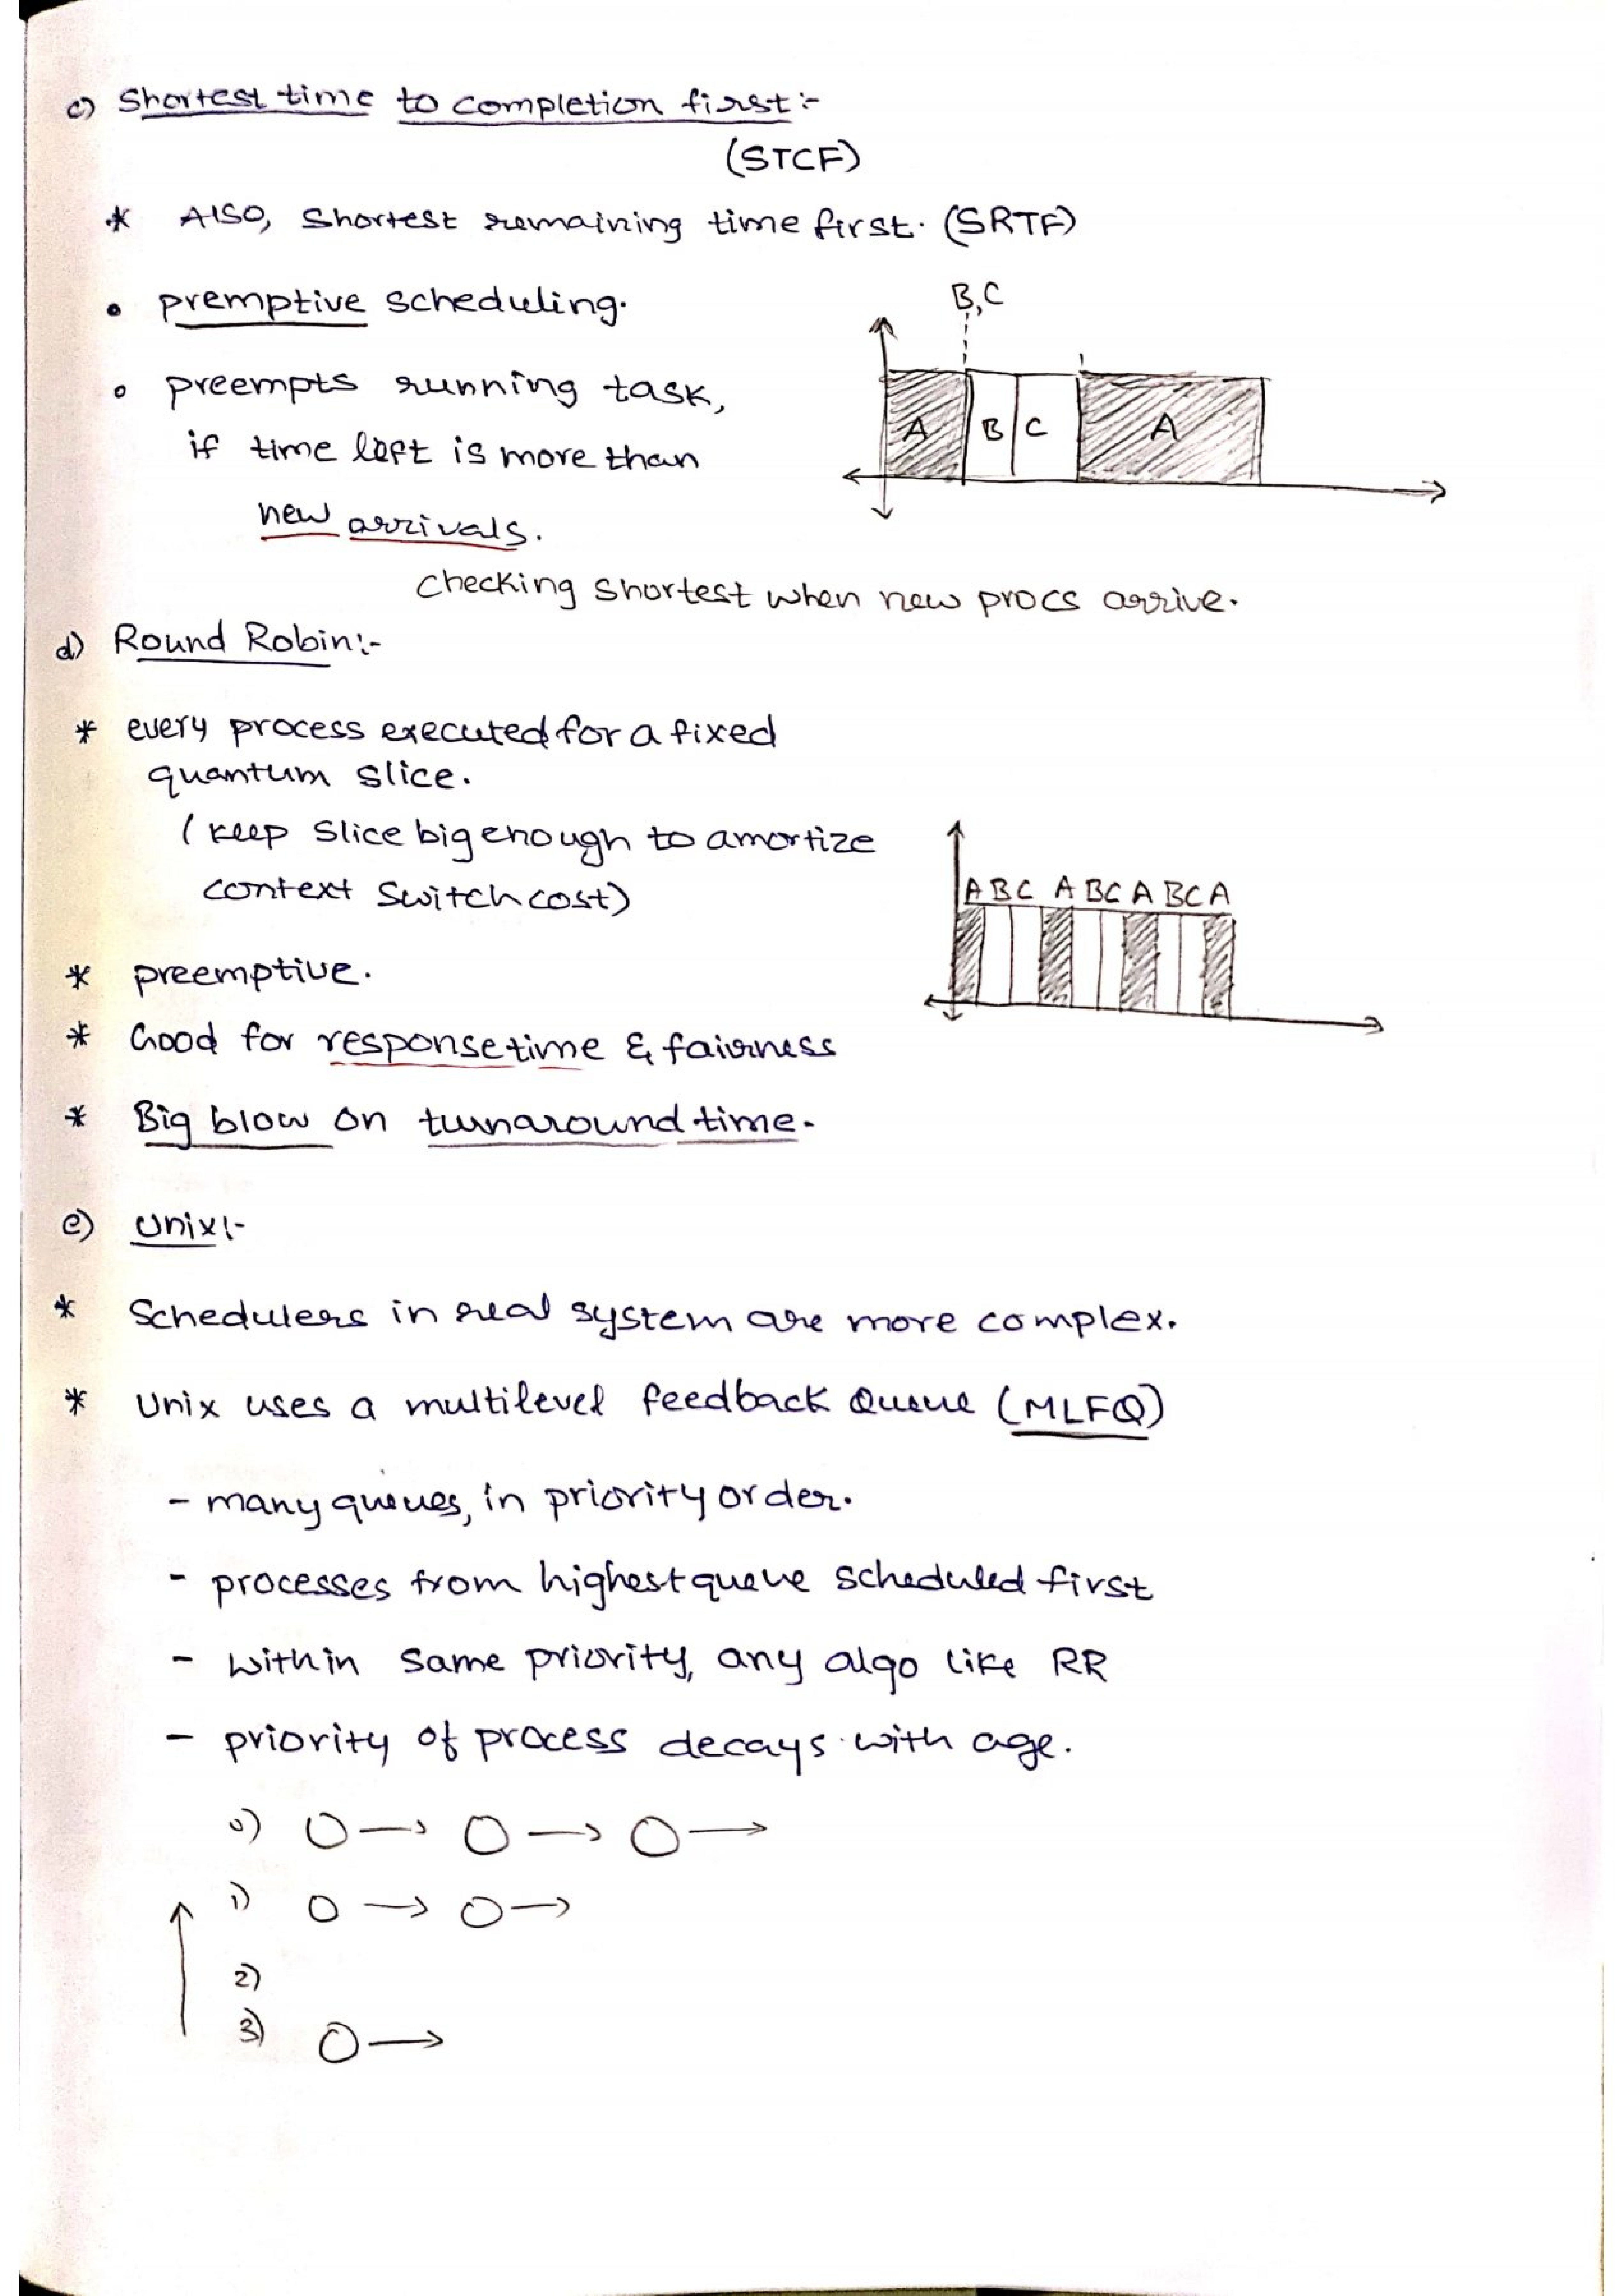 c) Shortest time to completion first :-
(STCF)
* Also, Shortest remaining time first. (SRTF)
• premptive scheduling.
B,C
∘ preempts running task,
if time left is more than
A B C A
new arrivals.
Checking Shortest when new procs arrive.
d) Round Robin:-
* every process executed for a fixed
quantum slice.
( keep slice big enough to amortize
context switch cost)
A B C A B C A B C A
* preemptive.
* Good for response time & fairness
* Big blow on turnaround time.
e) Unix:-
* Schedulers in real system are more complex.
* Unix uses a multilevel feedback Queue (MLFQ)
- many queues, in priority order.
- processes from highest queue scheduled first
- within same priority, any algo like RR
- priority of process decays with age.
0)
1)
2)
3)